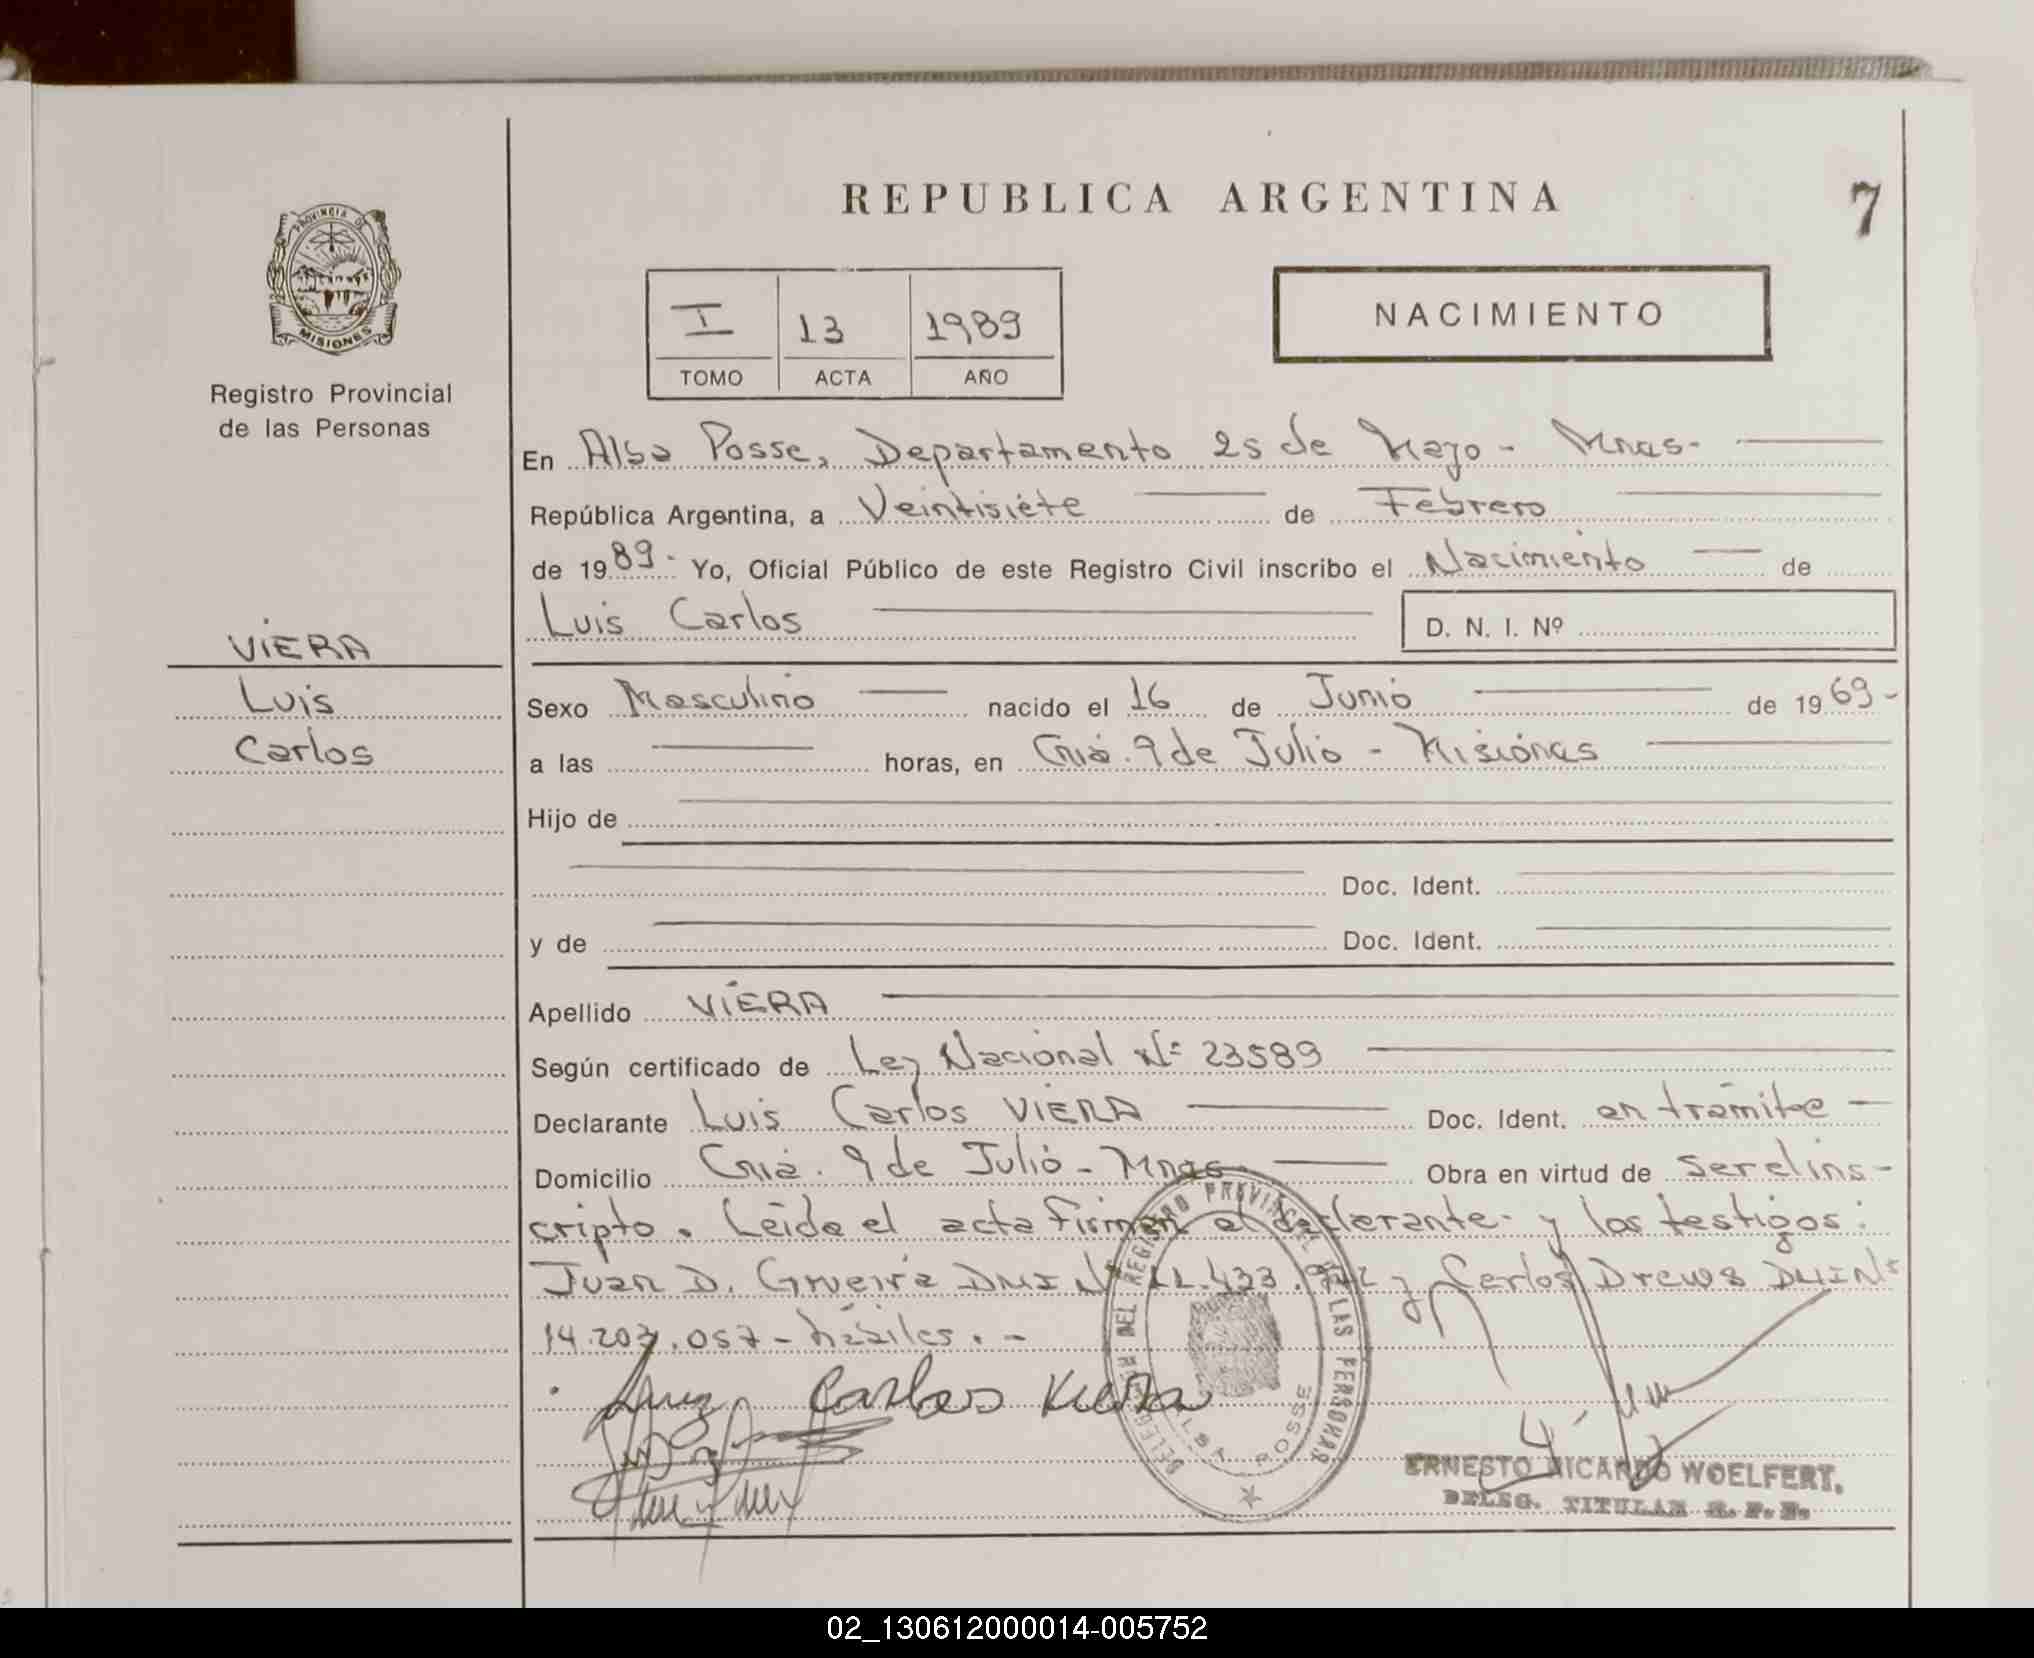 REPUBLICA ARGENTINA
7
PROVINCIA DE
MISIONES
Registro Provincial
de las Personas
I 13 1989
TOMO ACTA AÑO
NACIMIENTO
En Alba Posse, Departamento 25 de Mayo - Mnas-
República Argentina, a Veintisiete de Febrero
de 1989- Yo, Oficial Público de este Registro Civil inscribo el Nacimiento de
Luis Carlos D. N. I. Nº
VIERA
Luis
Carlos
Sexo Masculino nacido el 16 de Junio de 1969-
a las horas, en Cnia. 9 de Julio - Misiones
Hijo de
Doc. Ident.
y de Doc. Ident.
Apellido VIERA
Según certificado de Ley Nacional Nº 23589
Declarante Luis Carlos VIERA Doc. Ident. en trámite
Domicilio Cnia. 9 de Julio - Mnas- Obra en virtud de ser el ins-
cripto. Leida el acta firman el declarante y los testigos:
Juan D. DNI Nº y Carlos Drews DNI Nº
14.203.057 - hábiles. -
Luiz Carlos Viera
DELEGACION DEL REGISTRO PROVINCIAL DE LAS PERSONAS
ALBA POSSE
ERNESTO RICARDO WOELFERT.
DELEG. TITULAR R. P. P.
02_130612000014-005752